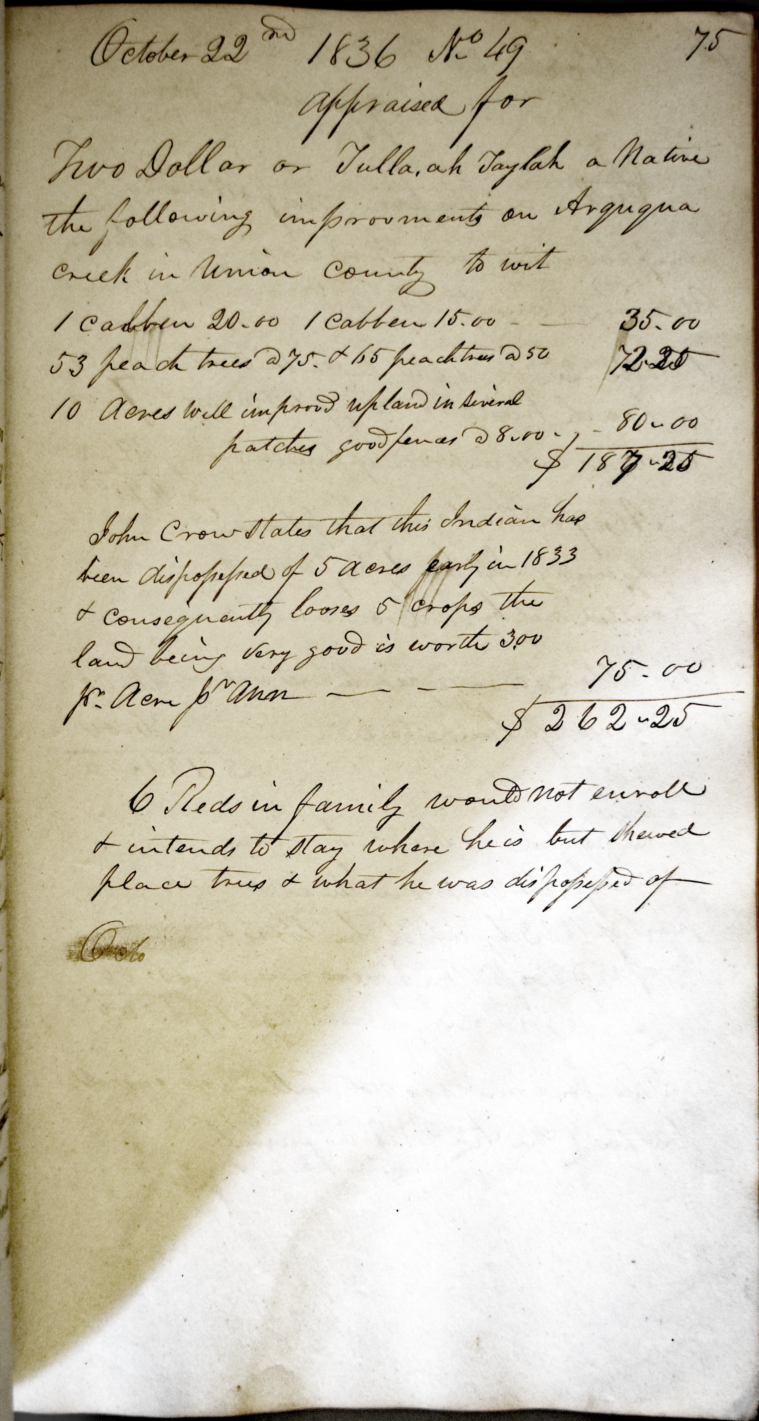 October 22nd 1836 No 49 75
appraised for
Two Dollar or Tulla,ah Taylah a Native
the following improvments on Arguqua
creek in Union county to wit
1 cabben 20.00 1 cabben 15.00 - — 35.00
53 peach trees @ 75. & 65 peach trees @ 50 72.25
10 Acres well improvd upland in several
patches good fences @ 8.00. - 80.00
$ 187.25
John Crow states that this Indian has
been dispossessed of 5 acres early in 1833
& consequently looses 5 crops the
land being very good is worth 300
pr. Acre pr Ann — - — 75.00
$ 262.25
6 Reds in family would not enroll
& intends to stay where he is but shewed
place trees & what he was dispossessed of
Octo